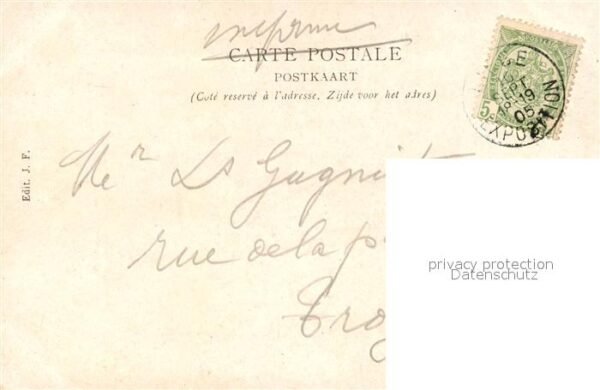 imprimé
CARTE POSTALE
POSTKAART
(Coté reservé à l'adresse. Zijde voor het adres)
5
GE
SEPT
8-19
05
EXPOSITION
Edit. J. F.
Mr Ls
rue de la
Tro
privacy protection
Datenschutz